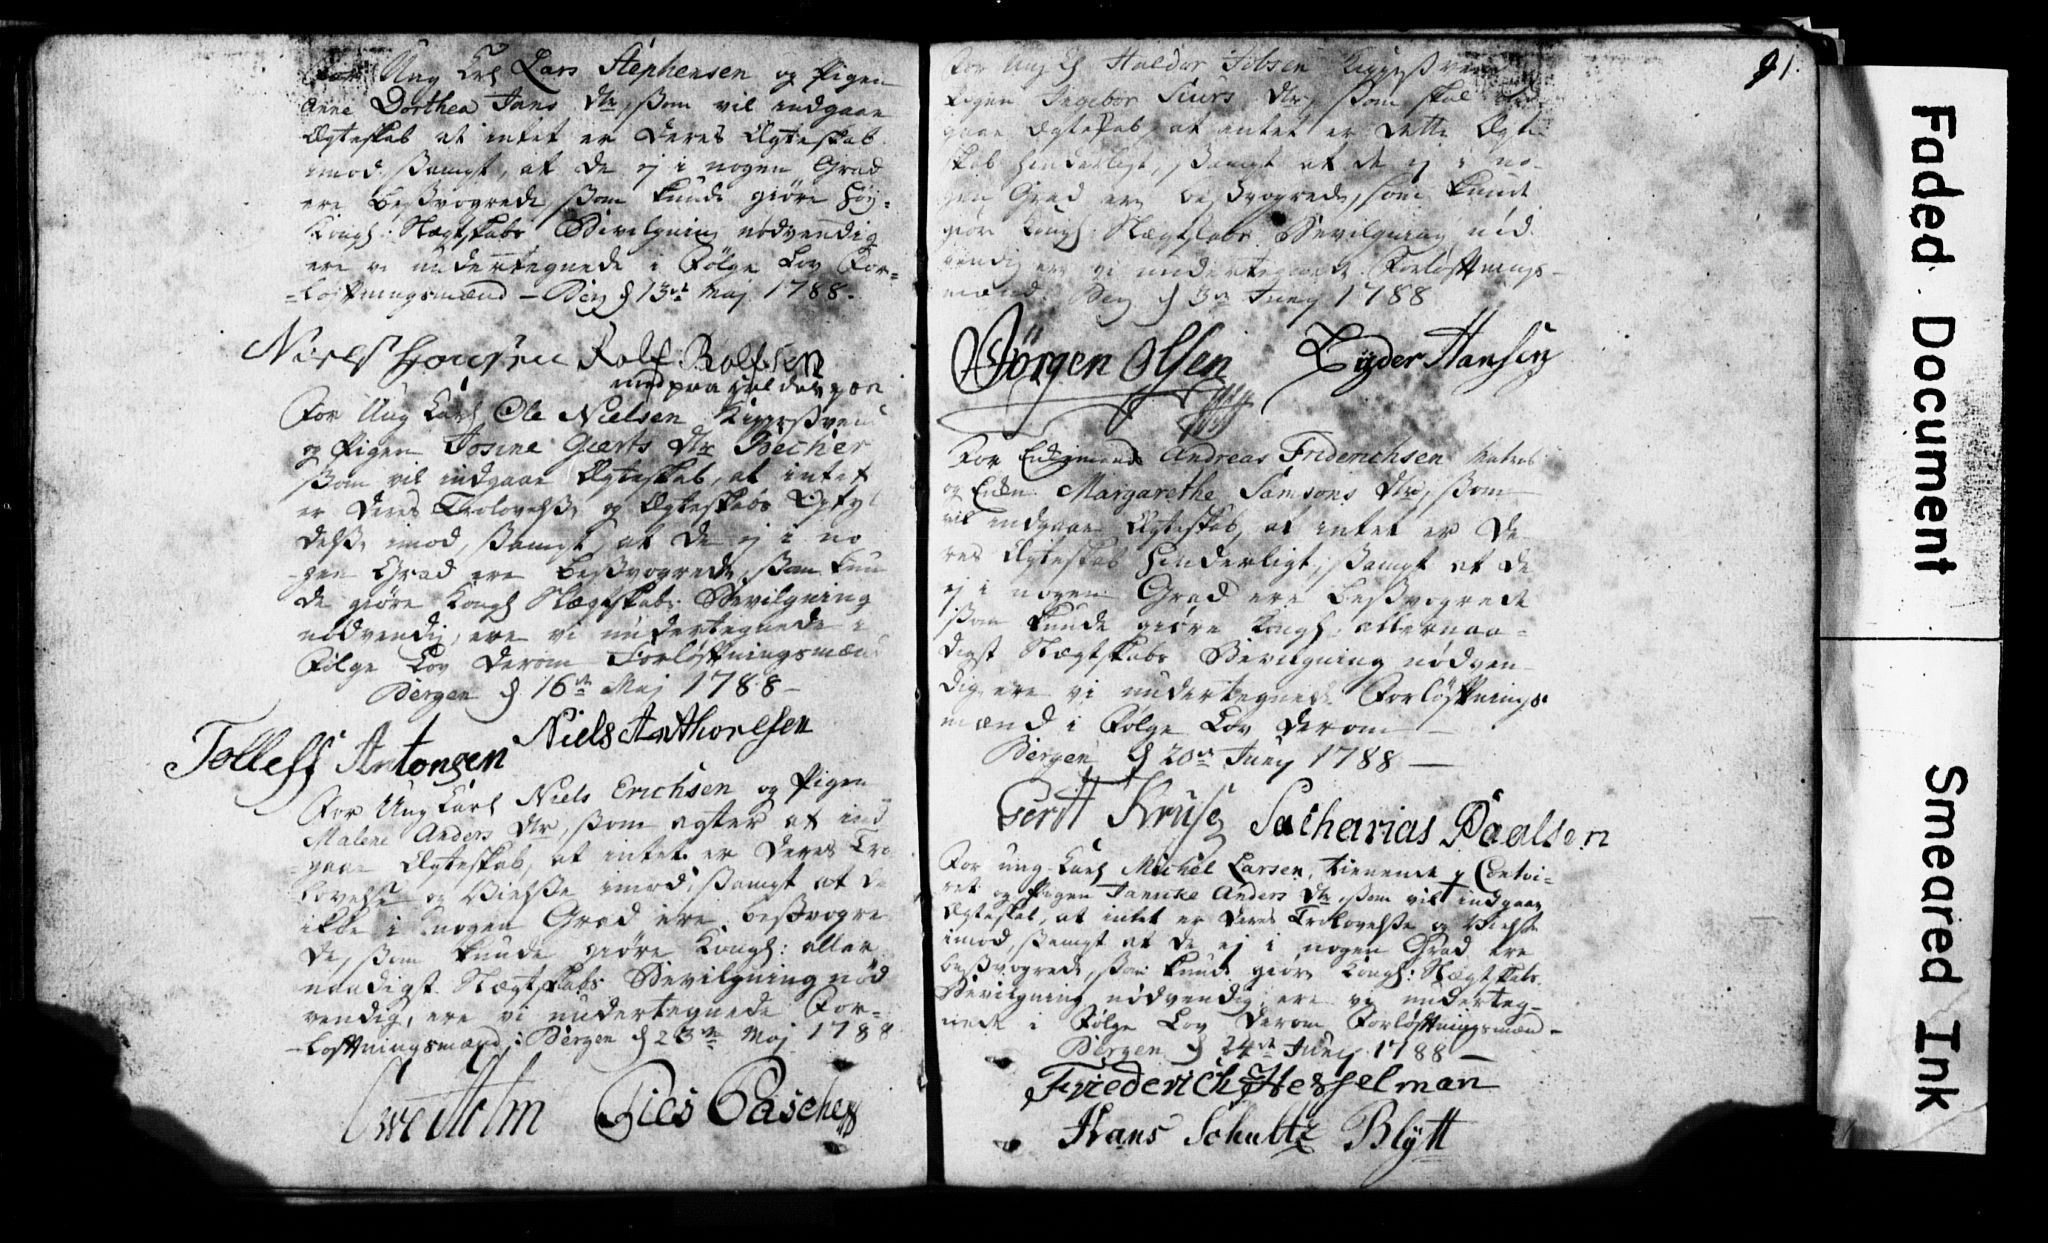 For Ung Krl Lars Stephensen og Pigen
Anne Dorthea Jans Dtr, som vil indgaae
Ægteskab at intet er Deres Ægteskab
imod, sampt, at de ej i nogen Grad
ere besvogrede, som kunde giöre höy-
Kongl: Slægtskabs Bevilgning nödvendig
ere vi undertegnede i Fölge Lov For-
-loftningsmænd - Berg d 13de Maj 1788.
Niels Rolf Rolfsen
med paa holden pæn
For Ung Karl Ole Nielsen
og Pigen Josine Geerts Dtr Becher
som vil indgaae Ægteskab, at intet
er Deres Trolovelse og Ægteskabs Opfyl
delse imod, sampt at de ej i no
gen Grad ere besvogrede, som kun
de giöre Kongl Slægtskabs Bevilgning
nödvendig, ere vi undertegnede i
Fölge Lov derom Forlöftningsmæn
Bergen d 16de Maj 1788-
Niels Anthonesen
Tolleff Antonsen
For Ung Karl Niels Erichsen og Pigen
Malene Anders Dtr, som agter at ind
gaae Ægteskab, at intet er Deres Tro
lovelse og Vielse imod, sampt at de
ikke i nogen Grad ere besvogre
de, som kunde giöre Kongl: aller
naadigst Slægtskabs Bevilgning nöd
vendig, ere vi undertegnede For-
-loftningsmænd; Bergen d 23de Maj 1788
Holm Gies Pasche
91.
For Ung K Haldor
Pigen Ingebor Siurs Dtr, som skal
gaae Ægteskab, at intet er Dette Ægte
skab hinderligt, sampt at de ej i no-
gen Grad ere besvogrede, som kunde
giöre Kongl: Slægtskabs Bevilgning nöd
vendig ere vi undertegnede Forlöftnings-
mænd. Berg d 3de Junj 1788
Jörgen Olsen Lÿder Hansen
For Andreas Friderichsen Matros
og Enken Margarethe Samsons Dtr, som
vil indgaae Ægteskab, at intet er De
res Ægteskab hinderligt, sampt at de
ej i nogen Grad ere besvogrede
som kunde giöre Kongl. allernaa-
digst Slægtskabs Bevilgning nödven
dig, ere vi undertegnede Forlöftnings-
mænd i Fölge Lov derom -
Bergen d 20de Junj 1788 -
Gerdt Kruse Sacharias Paalsen
For ung Karl Michel Larsen, tienende
og Pigen Jannike Anders Dtr, som vil indgaae
Ægteskab, at intet er Deres Trolovelse og Vielse
imod, sampt at de ej i nogen Grad ere
besvogrede, som kunde giöre Kongl: Slægtskabs
Bevilgning nödvendig; ere vi underteg-
nede i Fölge Lov derom Forlöftningsmæn-
Bergen d 24de Junj 1788 -
Friederich Hesselman
Hans Schultz Blÿtt
Faded Document
Smeared Ink